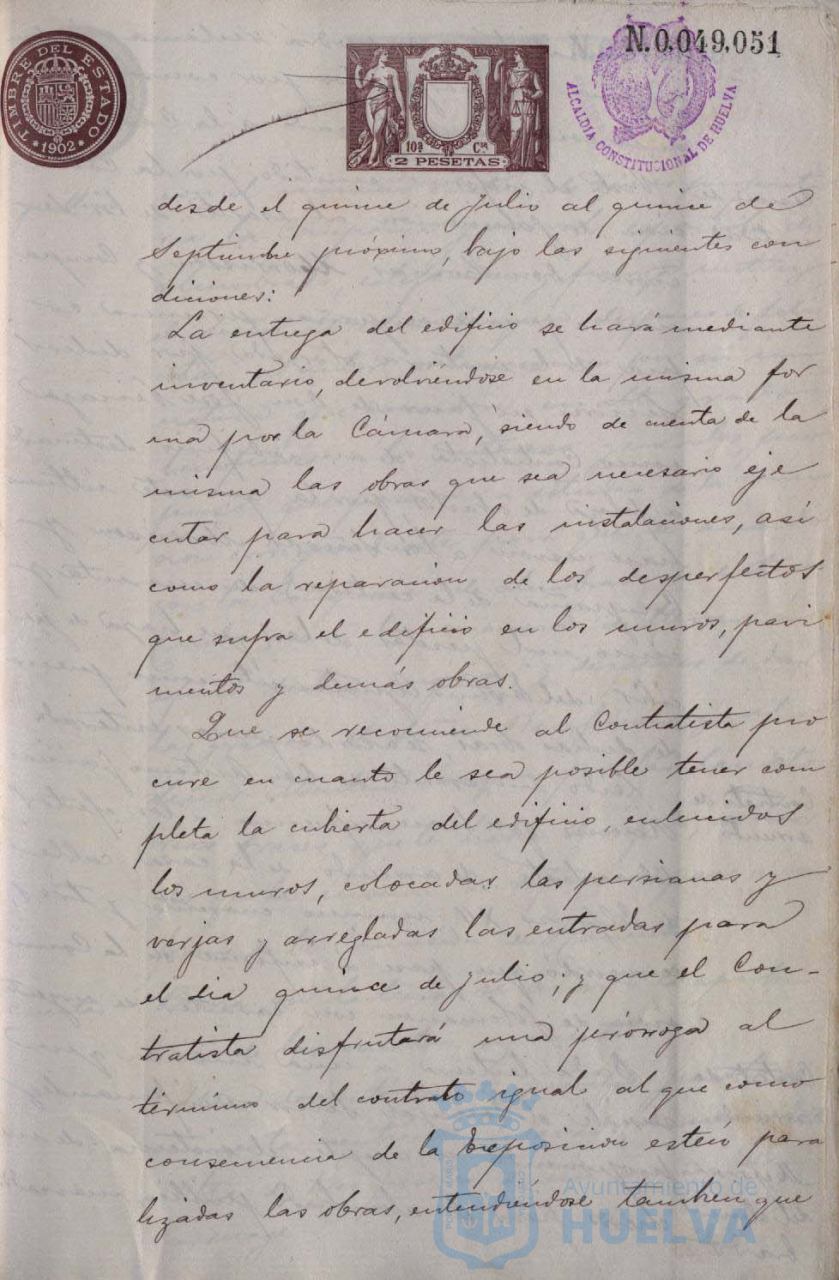 TIMBRE DEL ESTADO
*1902*
AÑO 1902
10ª Cˢᵉ
2 PESETAS
N.0.049.051
ALCALDIA CONSTITUCIONAL DE HUELVA
desde el quince de Julio al quince de
Septiembre próximo, bajo las siguientes con
diciones:
La entrega del edificio se hará mediante
inventario, devolviéndose en la misma for
ma por la Cámara, siendo de cuenta de la
misma las obras que sea necesario eje
cutar para hacer las instalaciones, así
como la reparacion de los desperfectos
que sufra el edificio en los muros, pavi
mentos y demás obras.
Que se recomiende al Contratista pro
cure en cuanto le sea posible tener com
pleta la cubierta del edificio, enlucidos
los muros, colocadas las persianas y
verjas y arregladas las entradas para
el dia quince de Julio; y que el Con-
tratista disfrutará una prórroga al
término del contrato igual al que como
consecuencia de la Exposicion estén para
lizadas las obras, entendiéndose tambien que
Ayuntamiento de
HUELVA